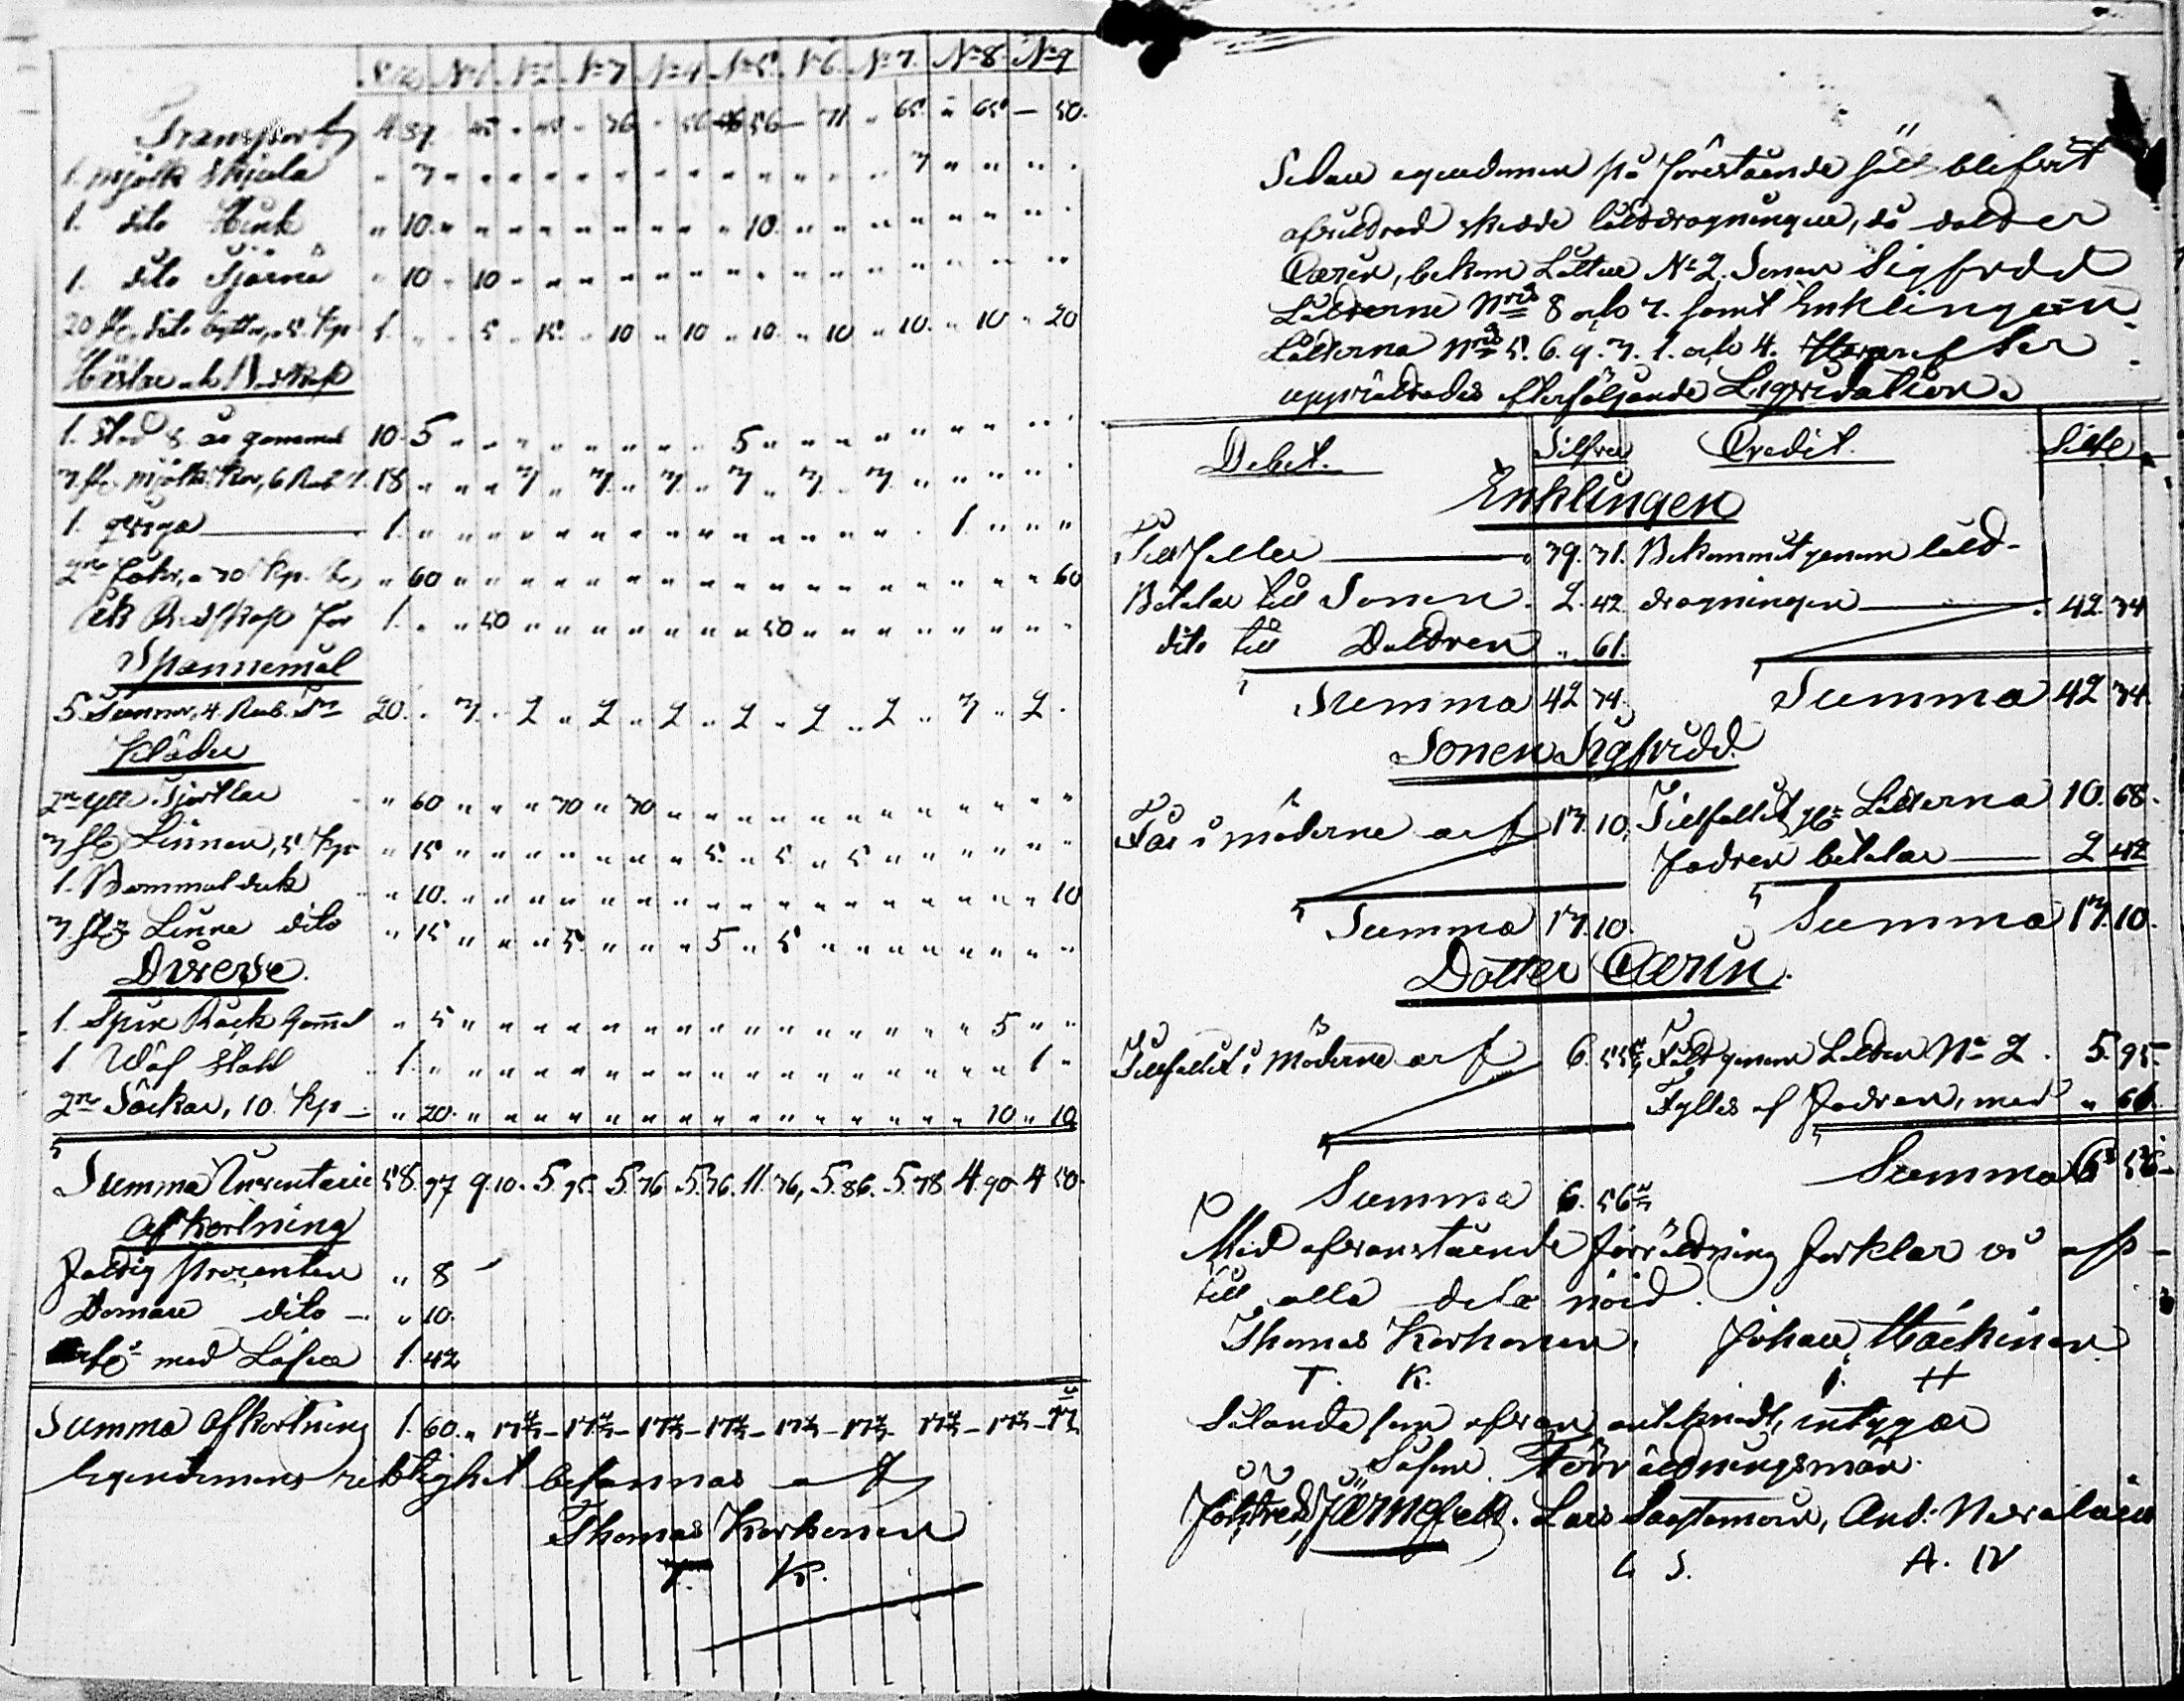 N:1 N:2 N:3 N:4 N:5 N:6 N:7 N:8 N:9
Transport 4 37 45 " 45 " 36 " 56 56 — 71 " 65 " 65 — 50.
1. Mjölk Skjula " 3 " 3
1. dito Hink " 10 " 10
1. dito Tjärna " 10 " 10
20 st. dito byttor, 5. Kp 1. " " 5 " 15 " 10 " 10 " 10 " 10 " 10 " 10 " 20
Hästar och Boskap
1. Stod 8 år gammal 10 5 " 5
3 st. Mjölk Kor, 6 Rub 18 " " 3 " 3 " 3 " 3 " 3 " 3
1. qviga 1. " 1
2ne Fåhr, a 30 Kp. st. " 60 " 60
Åk Redskap för 1. " " 50 " 50
Spannemål
5. Tunnor, 4. Rub. Tn 20. " 3. " 2 " 2 " 2 " 2 " 2 " 2 " 3 " 2
Kläder
2ne ylle Tjortlar " 60 " 30 " 30
3 st. Linnen, 5. Kp " 15 " 5. " 5 " 5
1. Bommul duk " 10. " 10
3. st. Linne dito " 15 " 5. " 5 " 5
Diverse.
1. Spin Råck Gam̄al " 5 " 5
1 Wäf Stohl " 1. " 1
2ne Säckar, 10. Kp — " 20. " 10 " 10
Summa Inventarie 58. 97 9. 10. 5. 95. 5. 36 5. 36. 11. 36, 5. 86. 5. 38 4. 90 4 50.
Afkortning
Fattig procenten " 8
Domare dito — " 10.
med Låsen 1. 42
Summa Afkortning 1. 60. " 17 — 17 — 17 — 17 — 17 — 17 — 17 — 17 — 17
Egendomens riktighet besannas af
Thomas Korhonen
T. K.
Sedan egendomen på förestående sätt blifvit
afvittrad skedde låttdragningen, då dotter
Carin, bekom Lotten No 2. Sonen Sigfridd
Lotterne Nris 8 och 7. samt Enklingen
Lotterna Nris 5. 6. 9. 3. 1. och 4. Hvarefter
upprättades efterföljande Liqvidation.
Debet. Silfver Credit. Silfv
Enklingen
Tillfaller — 39. 31. Bekommit genom lått-
Betalar till Sonen. 2. 42. dragningen — 42. 34
dito till Dottren " 61.
Summa 42 34. Summa 42 34.
Sonen Sigfridd.
Får i möderne arf 13. 10. Tillfallit Lotterna 10. 68.
Fadren betalar — 2 42
Summa 13. 10. Summa 13. 10.
Dotter Carin.
Tillfallit i Möderne arf 6. 55 Fådt genom Lotten No 2. 5. 95
Fylles af Fadren, med " 61.
Summa 6. 56 Summa 6 56
Med ofvanstående förrättning förklar vi oss
till alla delar nöid.
Thomas Korhonen. Johan Häckinen
T. K. J. H
Sålunda som ofvan antecknadt, intygar
Låsen Förrättningsmän.
Järnefelt. Lars Sagstamoin, And: Nevalain
L S. A. N